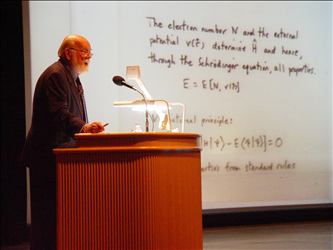 The electron number N and the external
potential v(r⃗) determine Ĥ and hence,
through the Schrödinger equation, all properties.
E = E[N, v(r⃗)]
principle:
|Ψ⟩ - E⟨Ψ|Ψ⟩] = 0
from standard rules